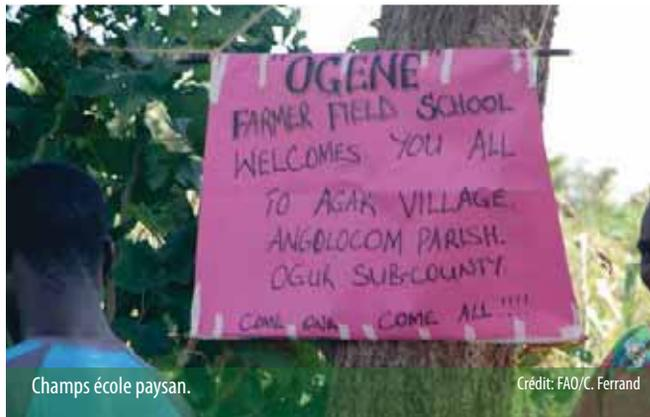 "OGENE"
FARMER FIELD SCHOOL
WELCOMES YOU ALL
TO AGAK VILLAGE.
ANGOLOCOM PARISH.
OGUR SUB-COUNTY.
COME ONE COME ALL !!!!
Champs école paysan.
Crédit: FAO/C. Ferrand